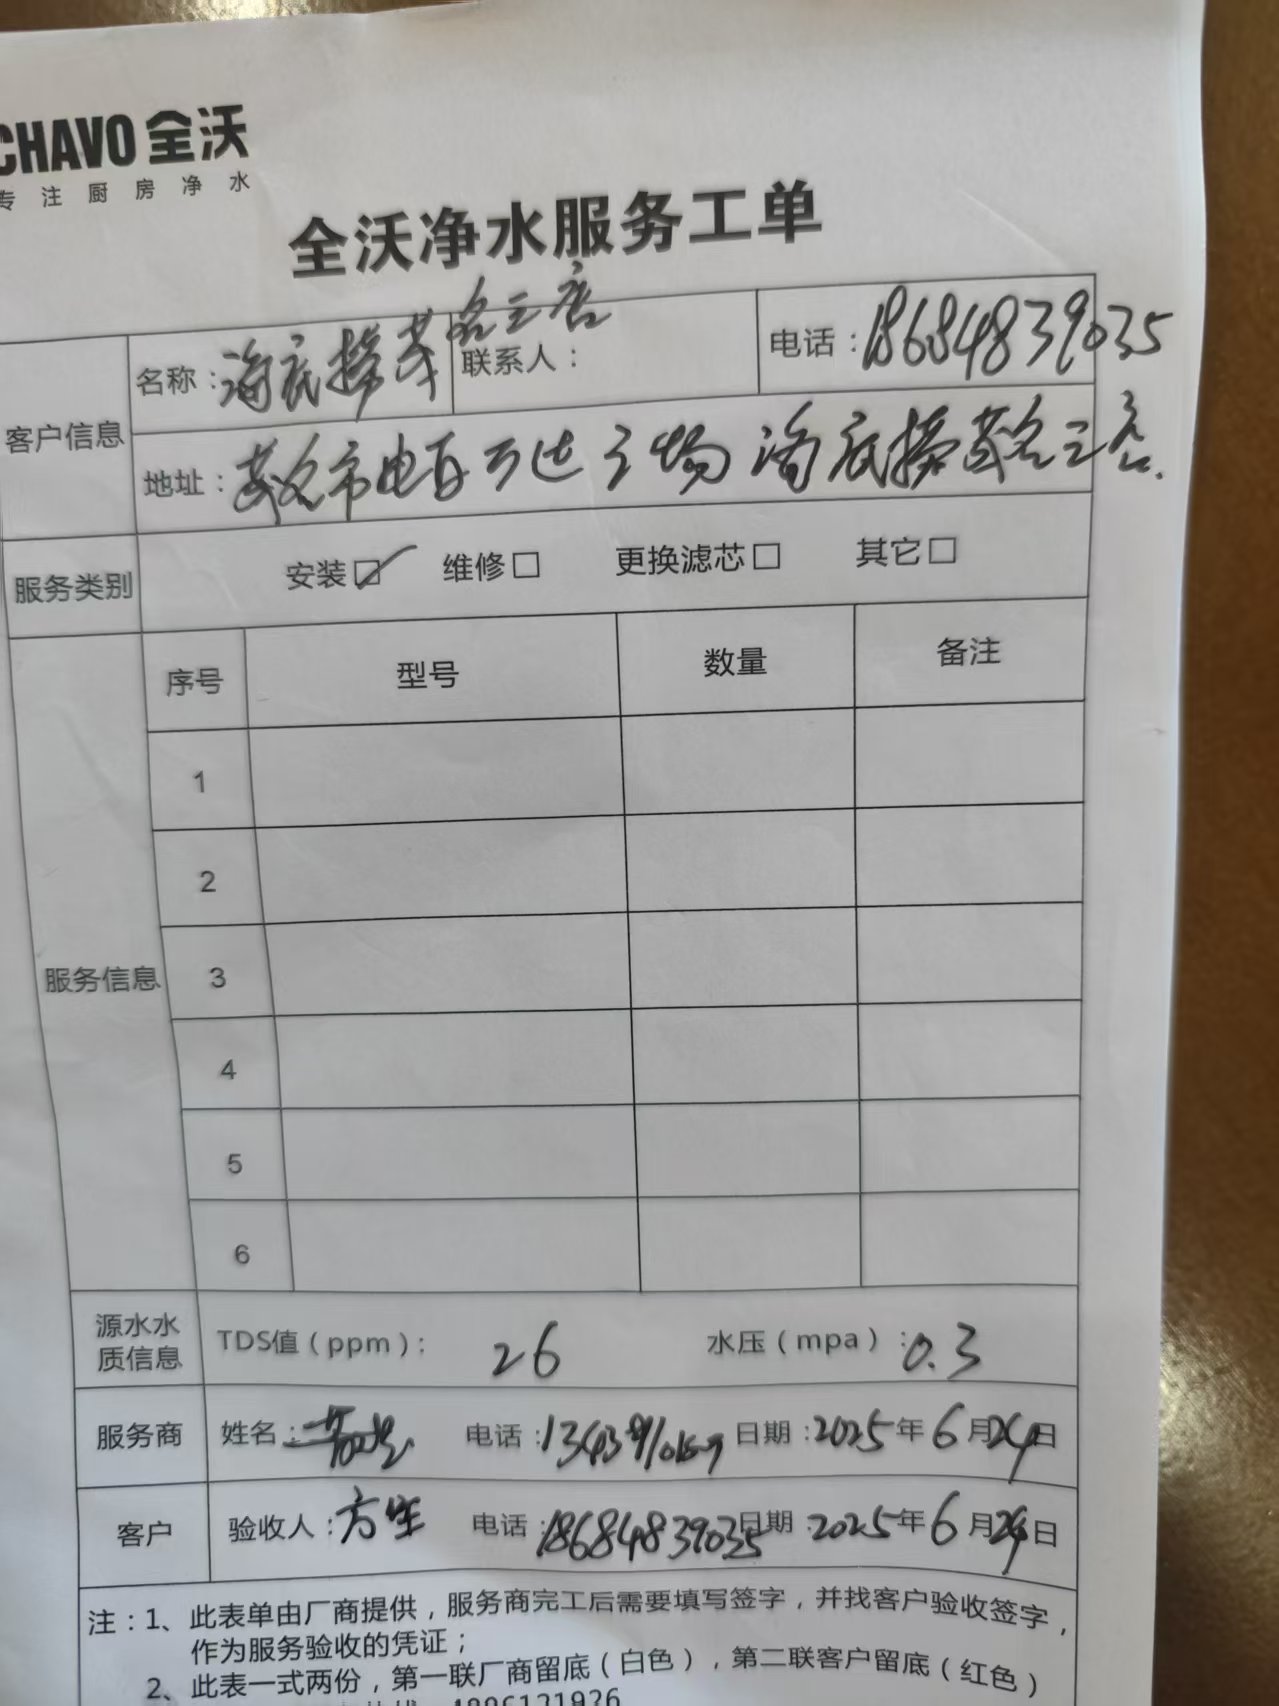 CHAVO 全沃
专注厨房净水
全沃净水服务工单
客户信息
名称：海底捞茂名三店
联系人：
电话：18684839035
地址：茂名市电白万达广场海底捞茂名三店.
服务类别
安装☑ 维修□ 更换滤芯□ 其它□
服务信息
序号 型号 数量 备注
1
2
3
4
5
6
源水水质信息
TDS值（ppm）： 26 水压（mpa）：0.3
服务商 姓名： 电话： 日期：2025年6月24日
客户 验收人：方生 电话：18684839035 日期：2025年6月24日
注：1、此表单由厂商提供，服务商完工后需要填写签字，并找客户验收签字，
作为服务验收的凭证；
2、此表一式两份，第一联厂商留底（白色），第二联客户留底（红色）